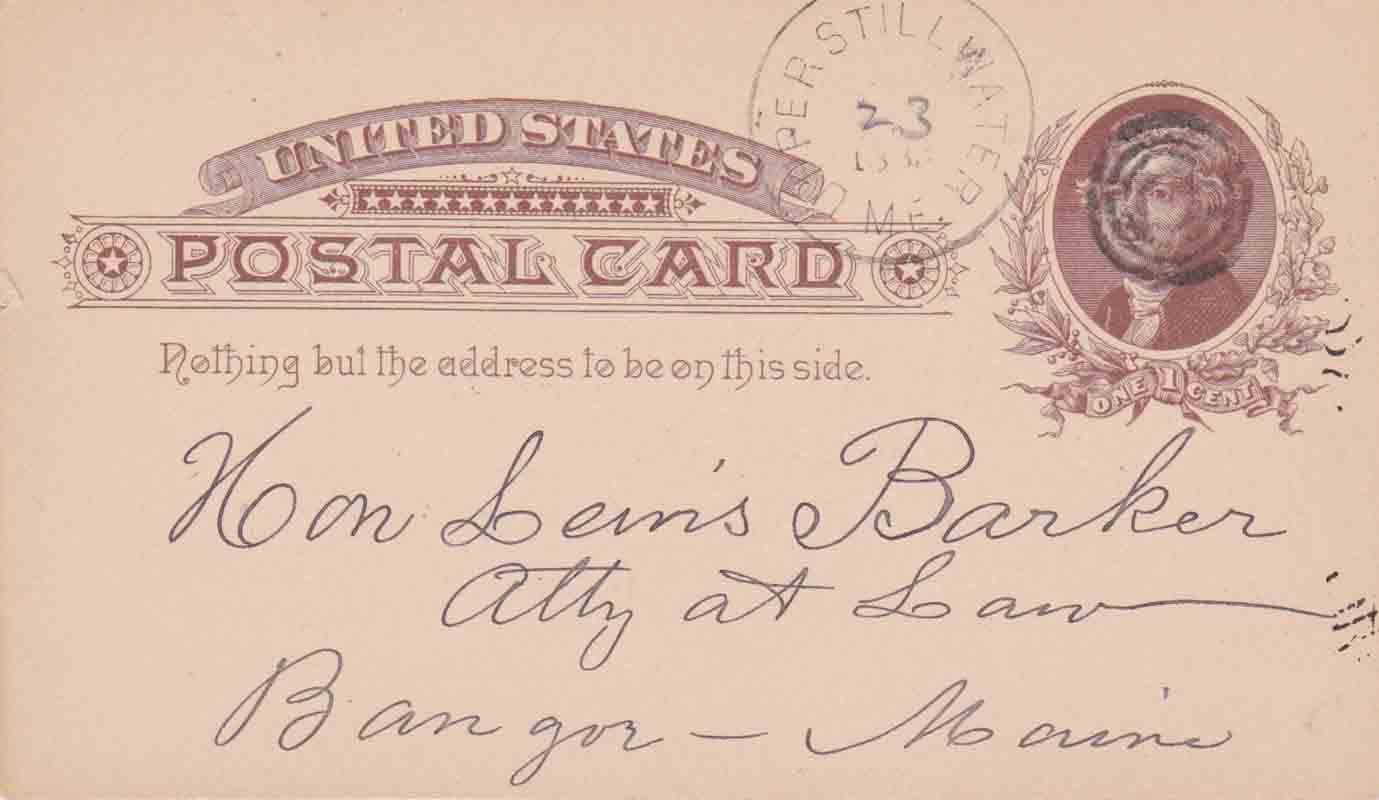 UPPER STILLWATER
23
ME.
UNITED STATES
POSTAL CARD
Nothing but the address to be on this side.
ONE 1 CENT
Hon Lewis Barker
Atty at Law
Bangor - Maine